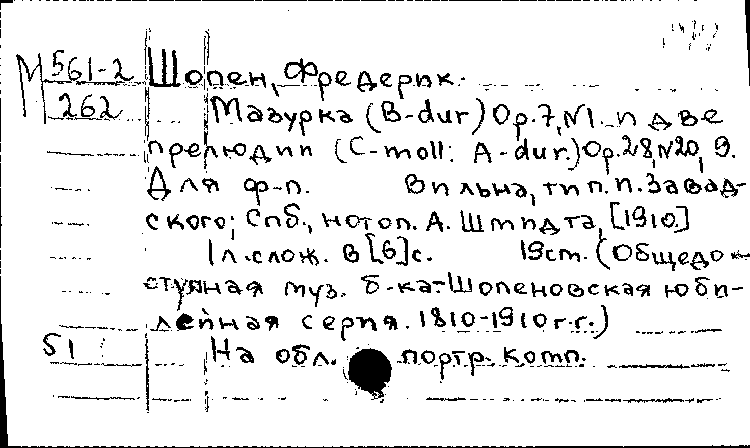 М 561-2 Шопен, Фредерик.
262 Мазурка (B-dur) Op.7, N1. и две
прелюдии (C-moll: A-dur.) Op.28, N20, 9.
Для ф-п. Вильна, тип. и. Завад-
ского; Спб., нотоп. А. Шмидта, [1910.]
1 л. слож. в [6] с. 19 cm. (Общедо-
ступная муз. б-ка-Шопеновская юби-
лейная серия. 1810-1910 г.г.)
51 На обл. портр. комп.